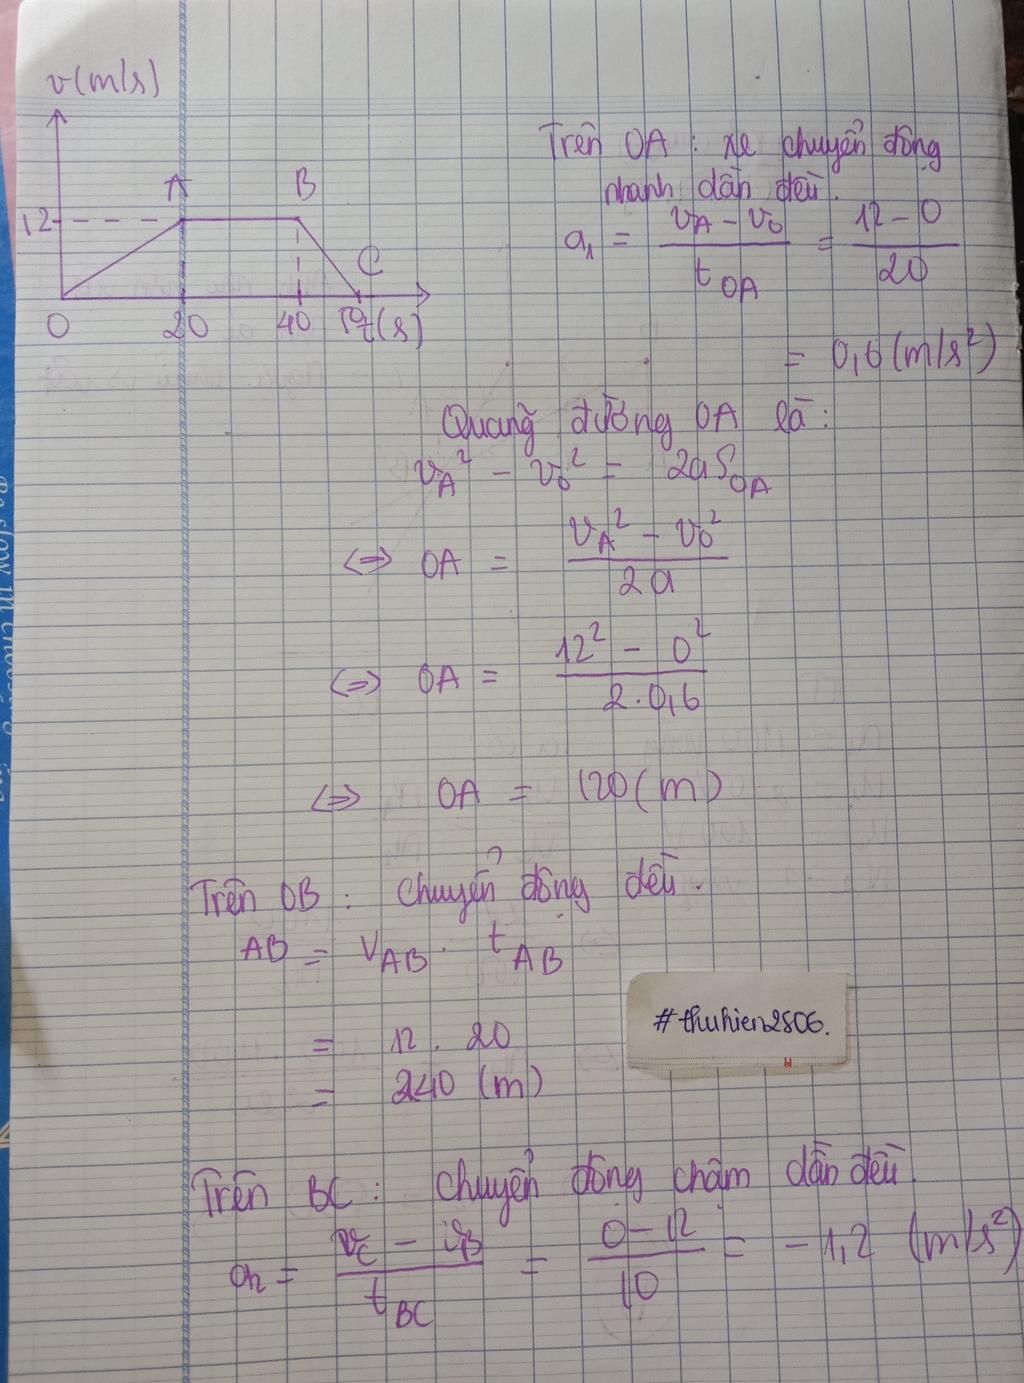 v(m/s)
A B
12
C
0 20 40 50 t(s)
Trên OA : xe chuyển động
nhanh dần đều.
a₁ = (v_A - v_0)/(t_OA) = (12 - 0)/20
= 0,6 (m/s²)
Quãng đường OA là:
v_A² - v_0² = 2aS_OA
<=> OA = (v_A² - v_0²)/(2a)
<=> OA = (12² - 0²)/(2.0,6)
<=> OA = 120 (m)
Trên OB : chuyển động đều.
AB = v_AB . t_AB
= 12 . 20
= 240 (m)
#thuhien2806.
Trên BC : chuyển động chậm dần đều
a₂ = (v_C - v_B)/(t_BC) = (0 - 12)/10 = -1,2 (m/s²)